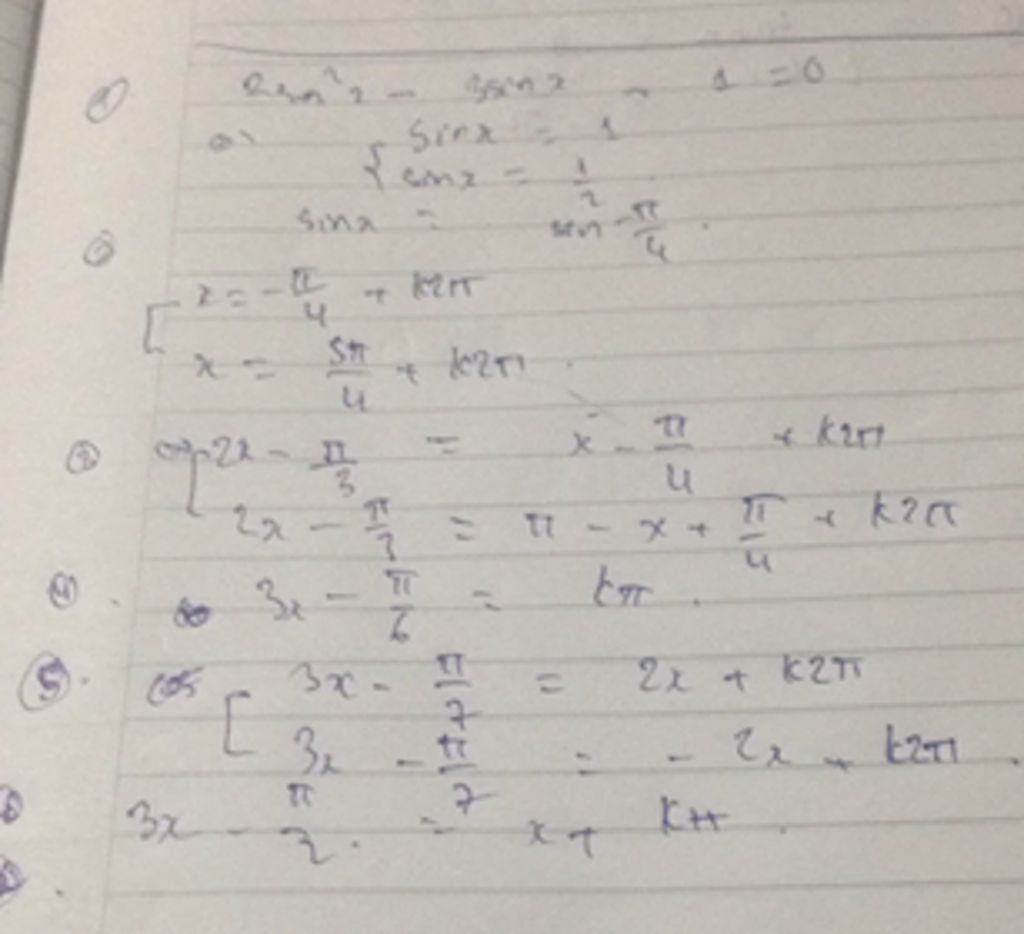 ① 2sin²x - 3sinx - 1 = 0
⇔ { sinx = 1
sinx = 1/2
② sinx = sin -π/4.
[ x = -π/4 + k2π
x = 5π/4 + k2π.
③ ⇔ [ 2x - π/3 = x - π/4 + k2π
2x - π/3 = π - x + π/4 + k2π
④. ⇔ 3x - π/6 = kπ.
⑤. [ 3x - π/7 = 2x + k2π
3x - π/7 = - 2x + k2π.
⑥ 3x - π/2. = x + kπ.